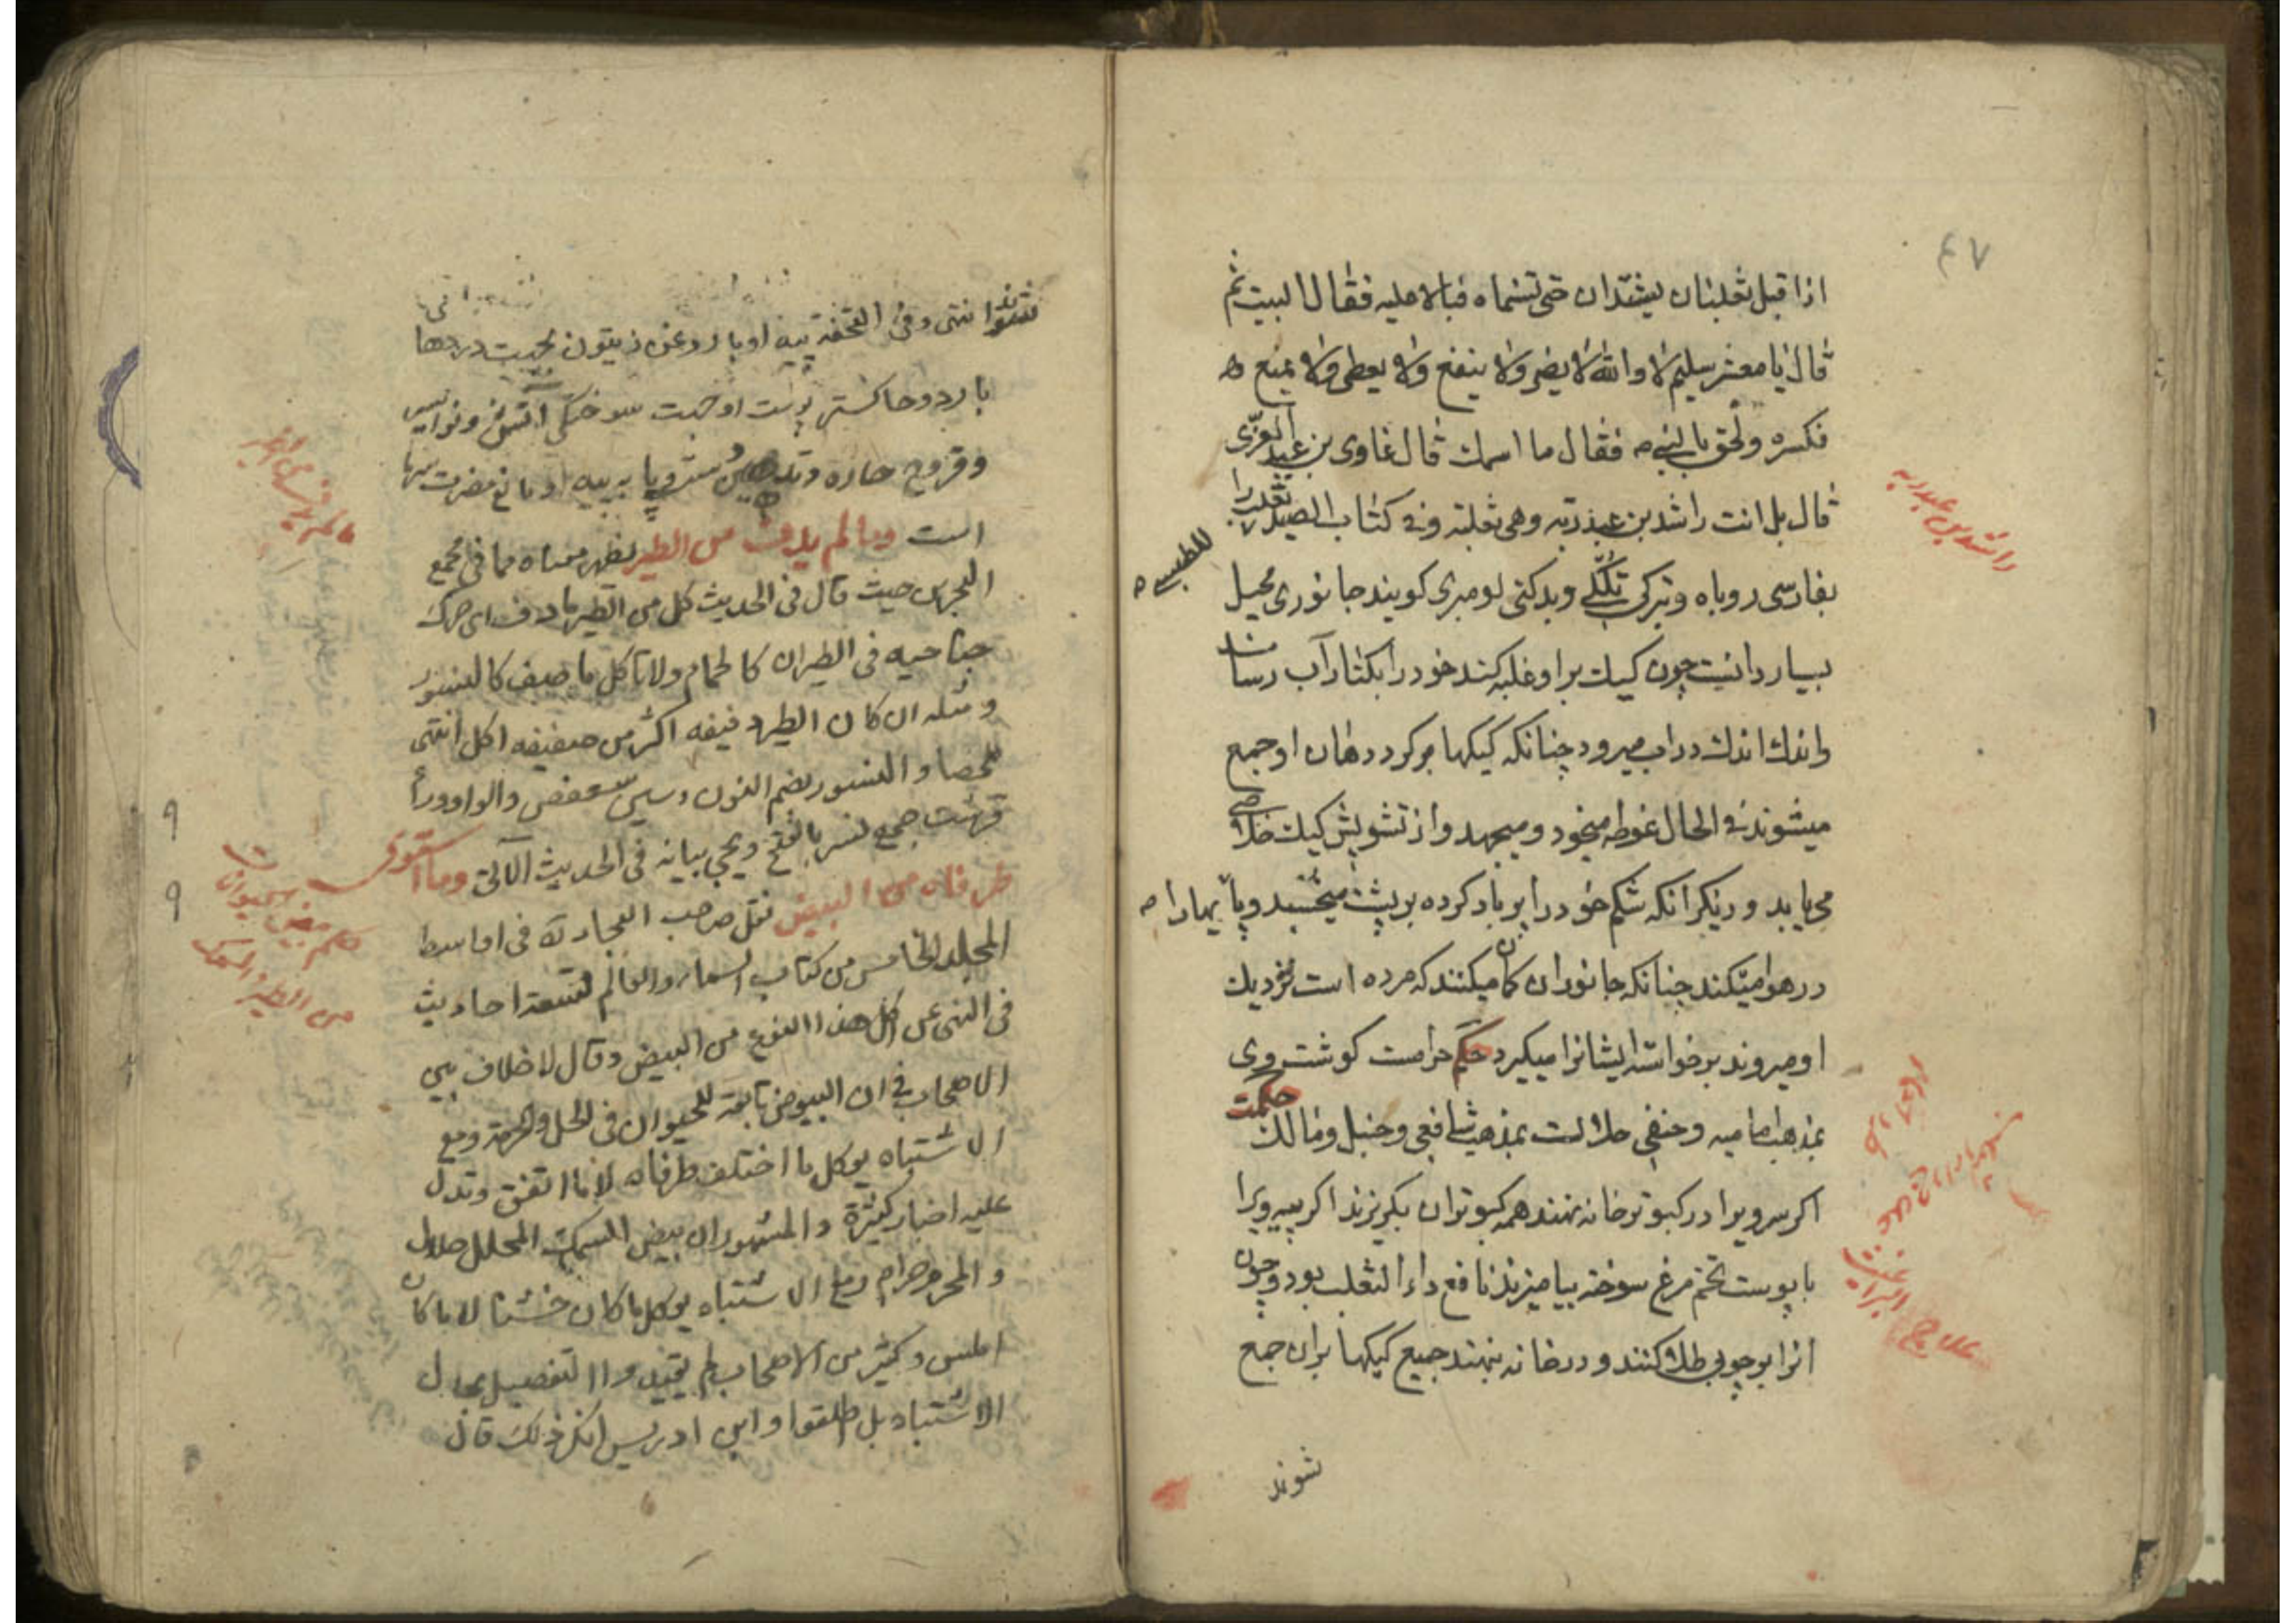 ۴۷
اذا قبل ثعلبان یشتدان حتی تسنماه فبالا علیه فقال البیت ثم
قال یا معشر سلیم لا والله لا یضر ولا ینفع ولا یعطی ولا یمنع
فکسره ولحق بالنبی ص فقال ما اسمك قال غاوی بن عبد العزی
قال بل انت راشد بن عبد ربه وهی ثعلبة وفی کتاب الصید ثعلب را
للطبسی
راشد بن عبد ربه
بفارسی روباه وبترکی تلکلے وبدکنی لومبری کویند جانوری محیل
بسیار دانیست چون کیك بر او غلبه کند خود را بکنار آب رساند
واندك اندك در اب میرود چنانکه کیکها بر کرد دهان او جمع
میشوند فی الحال غوطه میخورد ومیجهد واز تشویش کیك خلاصی
می یابد و دیکر انکه شکم خود را پر باد کرده بر پشت میخسبد وپایهارا
در هوا میکند چنانکه جانوران کمان میکنند که مرده است نزدیك
او میروند بر خواسته ایشانرا میکیرد حکم حرامست کوشت وی
بمذهب امامیه وحنفی حلالست بمذهب شافعی وحنبل ومالك حکمت
اکر سر ویرا در کبوتر خانه نهند همه کبوتران بکریزند اکر پیه ویرا
با پوست تخم مرغ سوخته بیامیزند نافع داء الثعلب بود وچون
انرا بر چوبی طلا کنند و در خانه بنهند جمیع کیکها بران جمع
علاج البراغیث
شوند
شوند انتهی وفی التحفة پیه او با روغن زیتون بجهت دردها
بارد وخاکستر پوست او جهت سوختکی آتش ونواسیر
وقروح حاره وتدهین دست وپا به پیه او مانع مضرت سرما
است وما لم یدف من الطیر یظهر معناه مما فی مجمع
البحرین حیث قال فی الحدیث کل من الطیر ما دف ای حرك
جناحیه فی الطیران کالحمام ولا تاکل ما صف کالنسور
ومثله ان کان الطیر دفیفه اکثر من صفیفه اکل انتهی
ملخصا والنسور بضم النون وسین سعفص والواو وراء
قرشت جمع نسر بالفتح ویجی بیانه فی الحدیث الآتی وما استوی
طرفاه من البیض نقل صاحب البحار ره فی اواسط
المجلد الخامس من کتاب السماء والعالم تسعة احادیث
فی النهی عن اکل هذا النوع من البیض وقال لا خلاف بین
الاصحاب فی ان البیوض تابعة للحیوان فی الحل والحرمة ومع
الاشتباه یوکل ما اختلف طرفاه لا ما اتفق وتدل
علیه اخبار کثیرة والمشهور ان بیض السمك المحلل حلال
والمحرم حرام ومع الاشتباه یوکل ما کان خشنا لا ما کان
املس وکثیر من الاصحاب لم یقیدوا التفصیل بحال
الاشتباه بل اطلقوا وابن ادریس انکر ذلك قال
حکم بیض
من الطیر والسمك